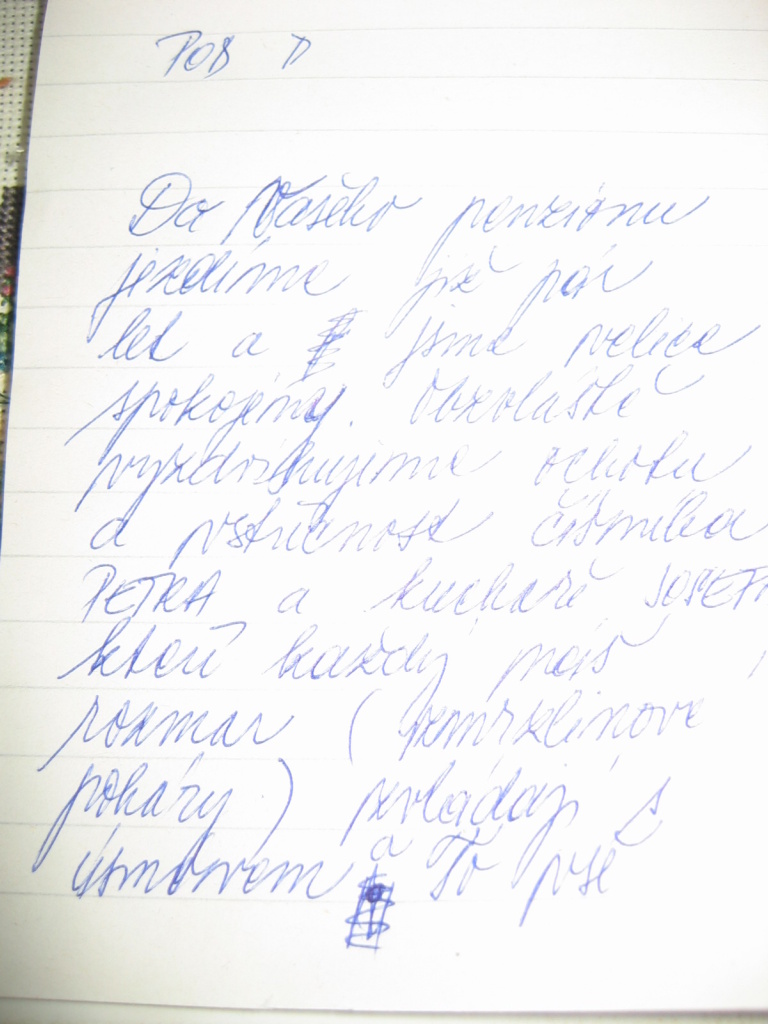 Do Vašeho penzionu
jezdíme již pár
let a jsme velice
spokojeny. Obzvláště
vyzdvihujeme ochotu
a vstřícnost číšníka
PETRA a kuchaře JOSEFA
kteří každý náš
rozmar (zmrzlinové
poháry) zvládají s
úsměvem a To vše